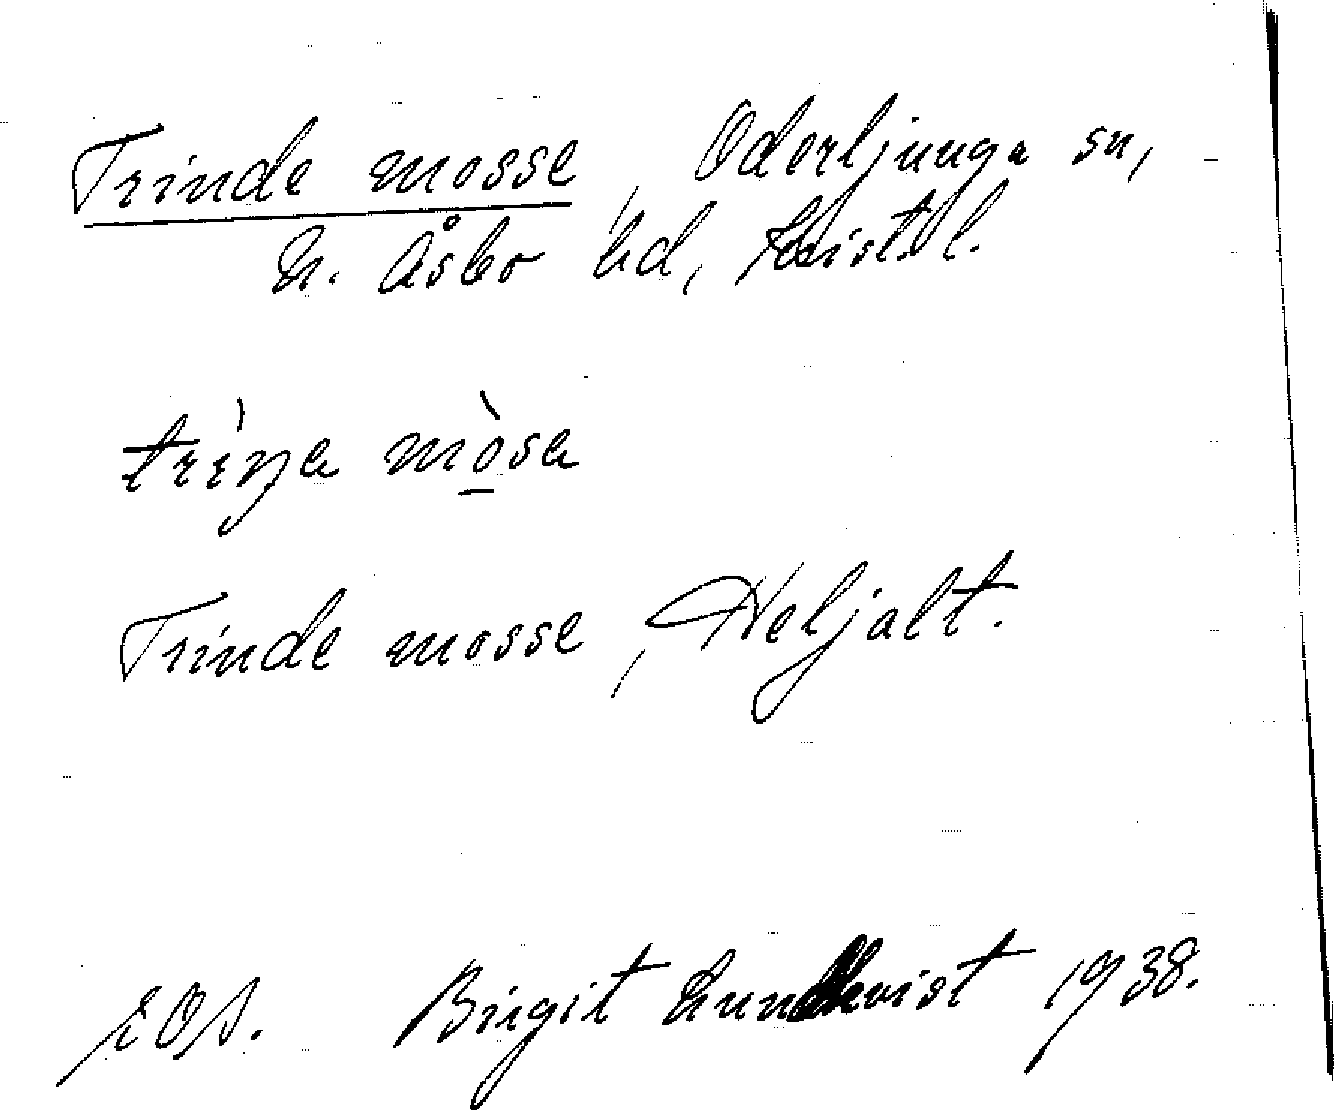 Trinde mosse, Oderljunga sn,
N. Åsbo hd, Krist. l.
trìṇa mò̱sa
Trinde mosse, Heljalt.
Birgit Lundkvist 1938.